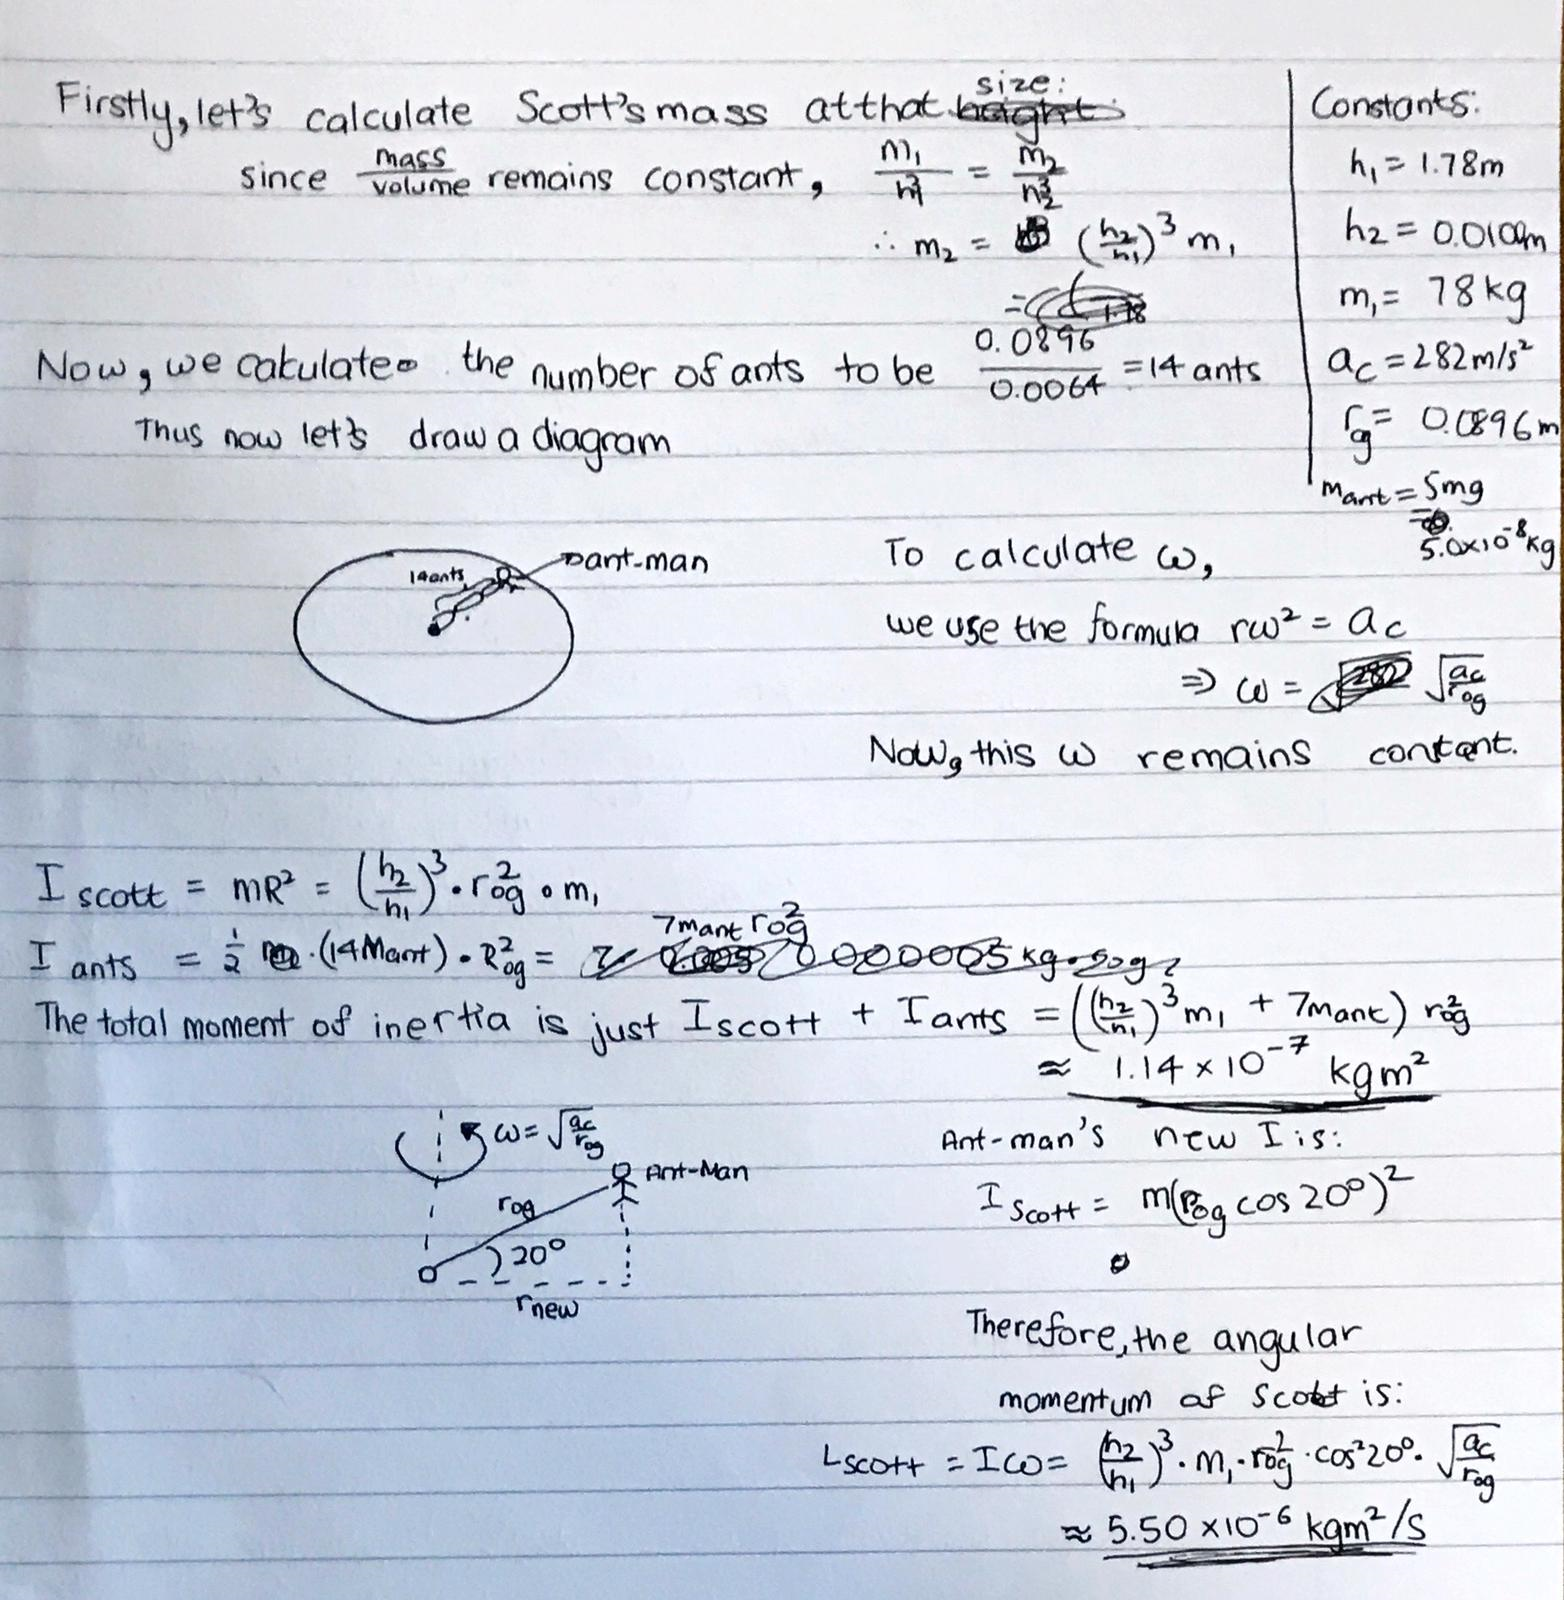 Firstly, let's calculate Scott's mass at that size:
since mass/volume remains constant, m₁/h₁³ = m₂/h₂³
∴ m₂ = (h₂/h₁)³ m₁
=
Now, we calculate the number of ants to be 0.0896/0.0064 = 14 ants
Thus now let's draw a diagram
Constants:
h₁ = 1.78m
h₂ = 0.0100m
m₁ = 78kg
a_c = 282m/s²
r_og = 0.0896m
m_ant = 5mg
=
5.0×10⁻⁸kg
14 ants
ant-man
To calculate ω,
we use the formula rω² = a_c
⇒ ω = √(a_c/r_og)
Now, this ω remains constant.
I scott = mR² = (h₂/h₁)³ · r_og² · m₁
I ants = ½ · (14Mant) · R_og² = 7mant r_og²
The total moment of inertia is just I scott + I ants = ((h₂/h₁)³ m₁ + 7mant) r_og²
≈ 1.14 × 10⁻⁷ kgm²
ω = √(a_c/r_og)
Ant-Man
r_og
20°
r_new
Ant-man's new I is:
I Scott = m(r_og cos 20°)²
Therefore, the angular
momentum of Scott is:
L scott = Iω = (h₂/h₁)³ · m₁ · r_og² · cos²20° · √(a_c/r_og)
≈ 5.50 ×10⁻⁶ kgm²/s